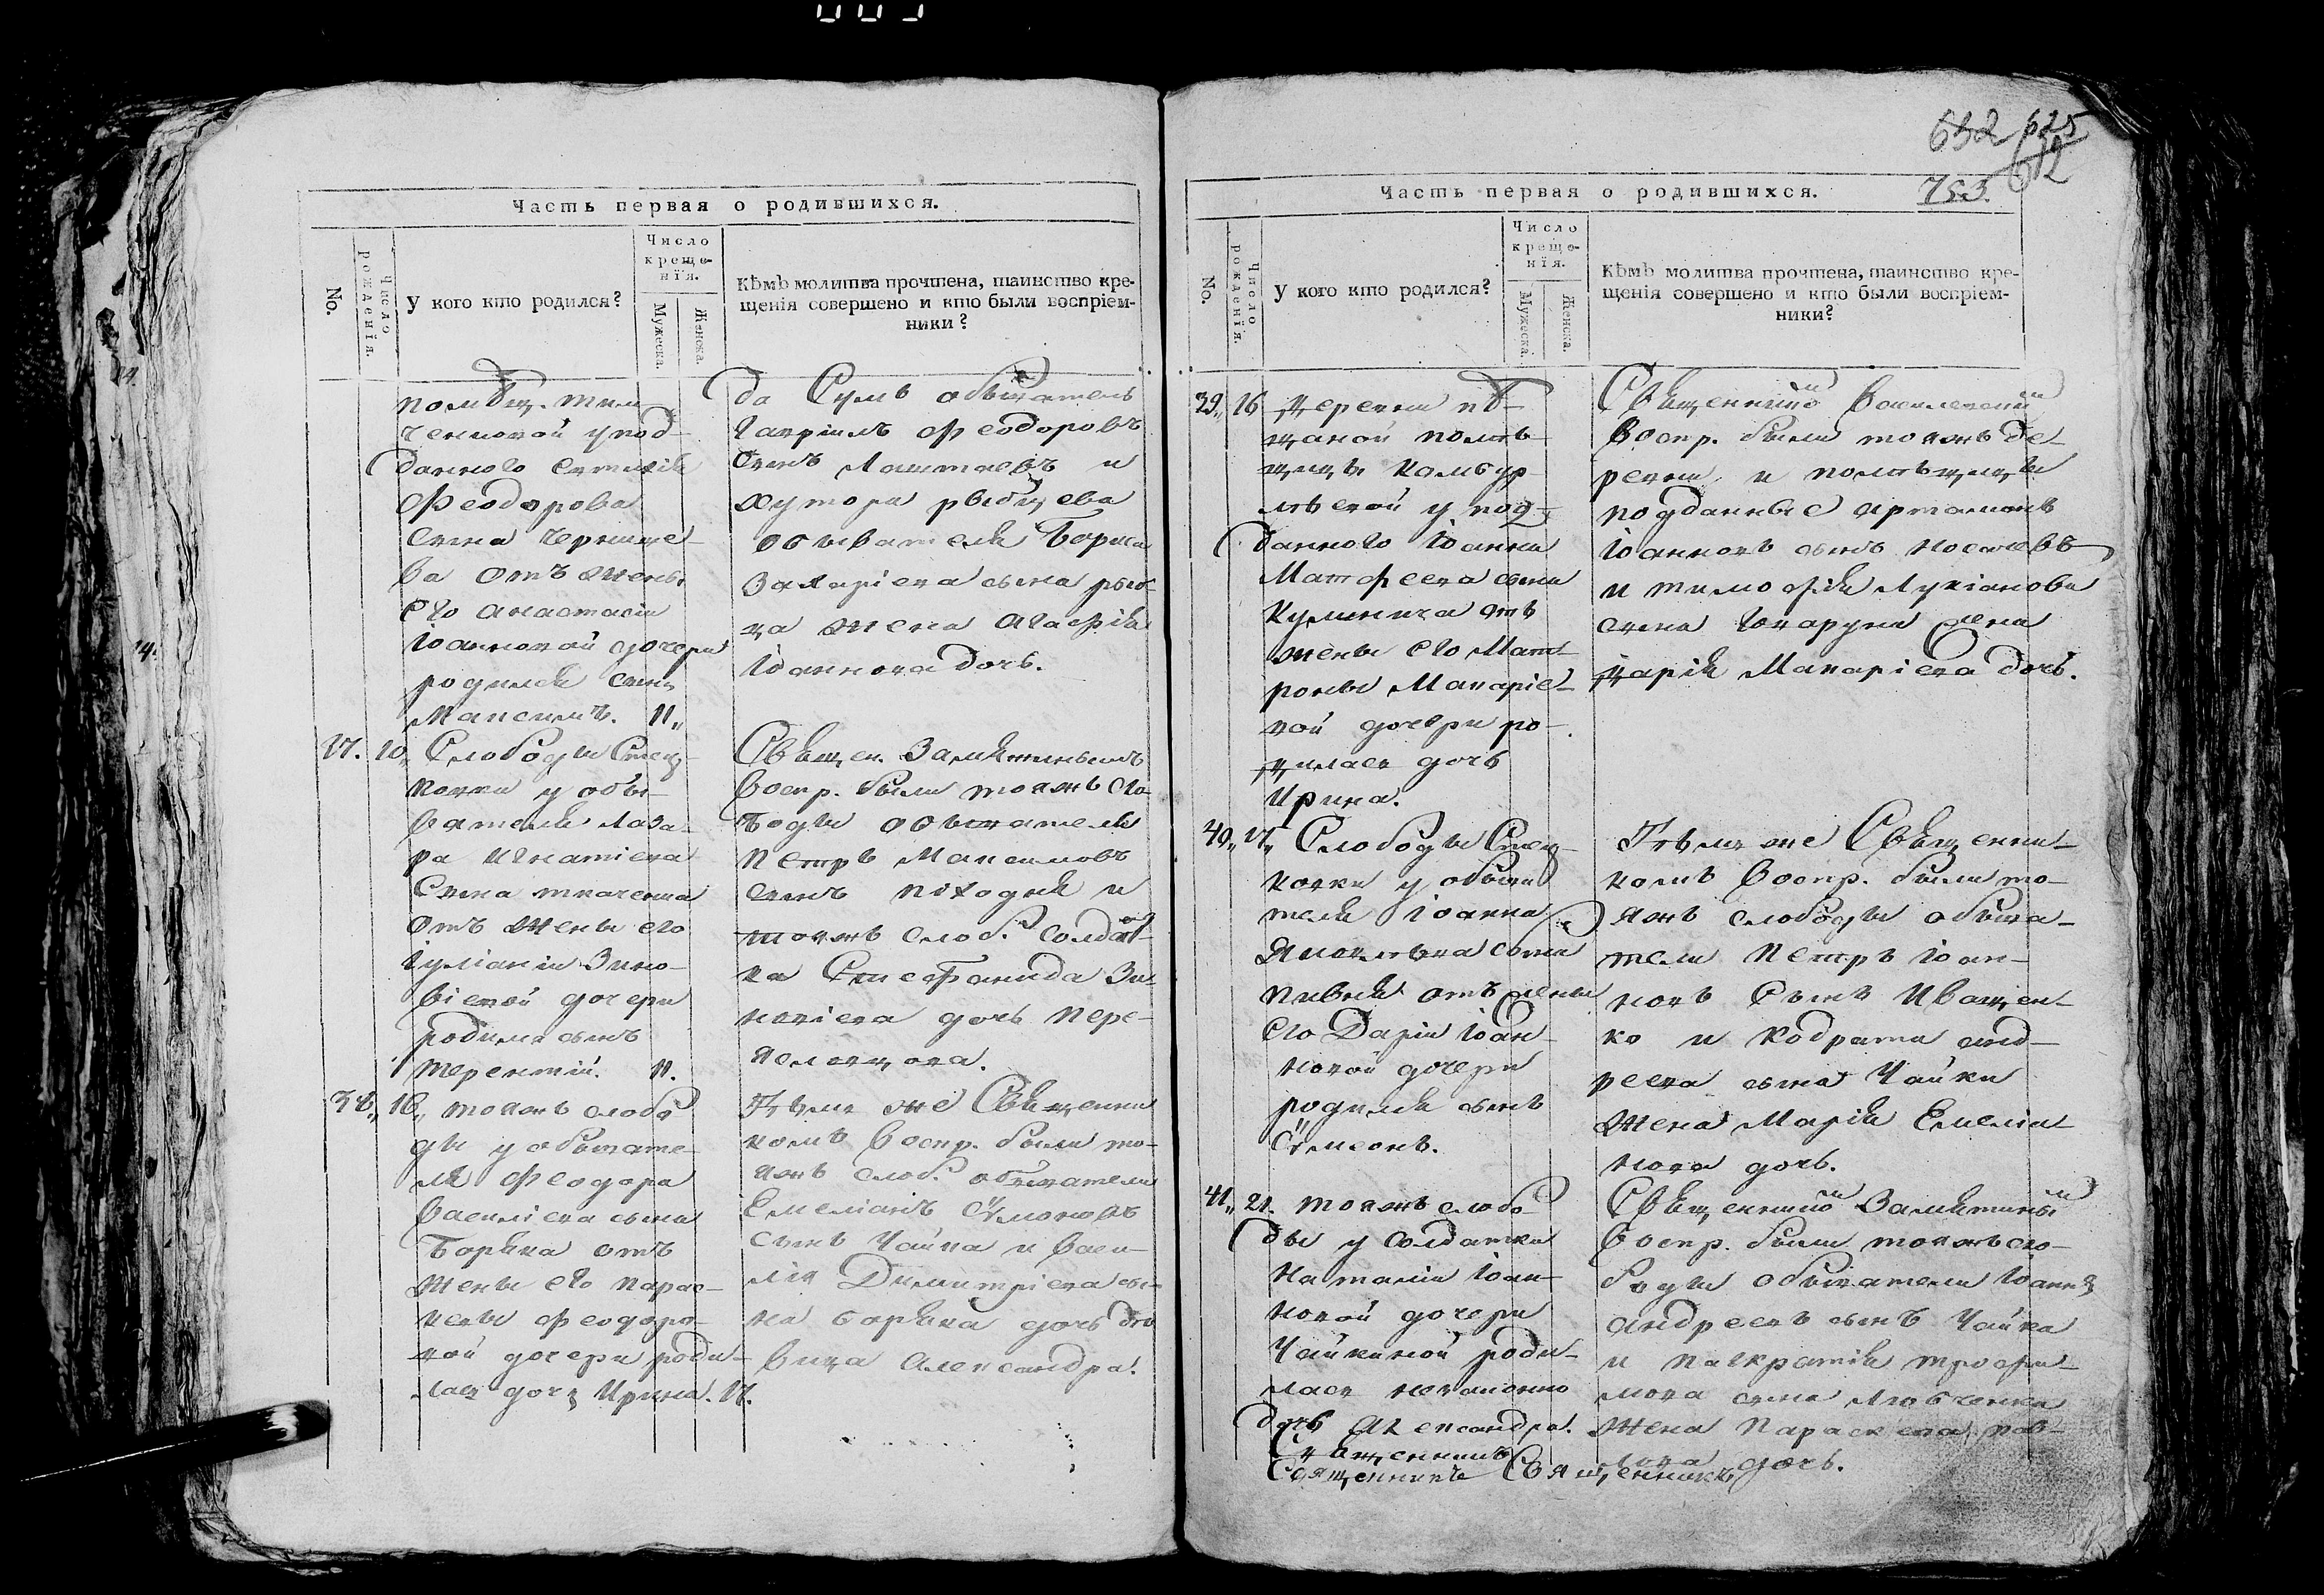 632 625
612
753.
Часть первая о родившихся.
No.
Число рожденія.
У кого кто родился?
Число креще-
нія.
Мужеска.
Женска.
Кѣмъ молитва прочтена, таинство кре-
щенія совершено и кто были воспріем-
ники?
помѣщ. тим-
ченковой у под-
данного
Феодорова
сына черныше-
ва отъ жены
его анастасіи
Іоанновой дочери
родился сынъ
Максимъ. 11,,
да Сумъ обыватель
Гавріилъ Феодоровъ
сынъ и
хутора рыбцева
обывателя Бориса
Захаріева сына рыб-
ца жена Агафія
Іоаннова дочь.
10,, Слободы Стец-
ковки у обы-
вателя Лаза-
ра Игнатіева
Сына ткаченка
отъ жены его
Іуліаніи Зино-
віевой дочери
родился сынъ
терентій. 11.
Священ. Замятинымъ
воспр. были тояжъ сло-
боды обыватели
Петръ Максимовъ
сынъ походня и
тояжъ слоб. солдат-
ка Стефанида Зи-
новіева дочь пере-
яславцова.
38,, 16,, тояжъ слобо
ды у обывате-
ля Феодора
Василіева сына
Боряка отъ
жены его парас-
кевы Феодоро-
вой дочери роди-
лась дочь Ирина. 17.
Тѣмъ же Священни
комъ воспр. были то-
яжъ слоб. обыватели
Емеліанъ Сѵмоновъ
сынъ Чайка и васи-
лія Димитріева сы-
на боряка дочь дѣ-
вица Александра.
Часть первая о родившихся.
No.
Число рожденія.
У кого кто родился?
Число
креще-
нія.
Мужеска.
Женска.
Кѣмъ молитва прочтена, таинство кре-
щенія совершено и кто были воспріем-
ники?
39,, 16 Деревни пѣ-
щаной помѣ-
щицы Камбур-
лѣевой у под-
данного Іоанна
Матфеева сына
Кулинича отъ
жены его Мат-
роны Макаріе-
вой дочери ро-
дилась дочь
Ирина.
Священникомъ Василевскимъ
воспр. были тояжъ де-
ревни и помѣщицы
подданные артамонъ
Іоанновъ сынъ
и тимофѣя Лукіанова
сына жена
Дарія Макаріева дочь.
40,, 17,, Слободы Стец-
ковки у обыва
теля Іоанна
Яковлева сына
пивня отъ жены
его Даріи Іоан-
новой дочери
родился сынъ
Сѵмеонъ.
Тѣмъ же Священни-
комъ воспр. были то-
яжъ слободы обыва-
тели Петръ Іоан-
новъ Сынъ Иващен-
ко и Кодрата анд-
реева сына Чайки
жена Марія Емеліа-
нова дочь.
41,, 21. тояжъ слобо
ды у солдатки
Наталіи Іоан-
новой дочери
Чайкиной роди-
лась незаконно
дочь Александра.
Священникомъ Замятинымъ
воспр. были тояжъ сло-
боды обыватели Іоаннъ
андреевъ сынъ Чайка
и панкратія трофи-
мова сына Любченка
жена Параскева пав-
лова дочь.
Священникъ
Священникъ Священникъ